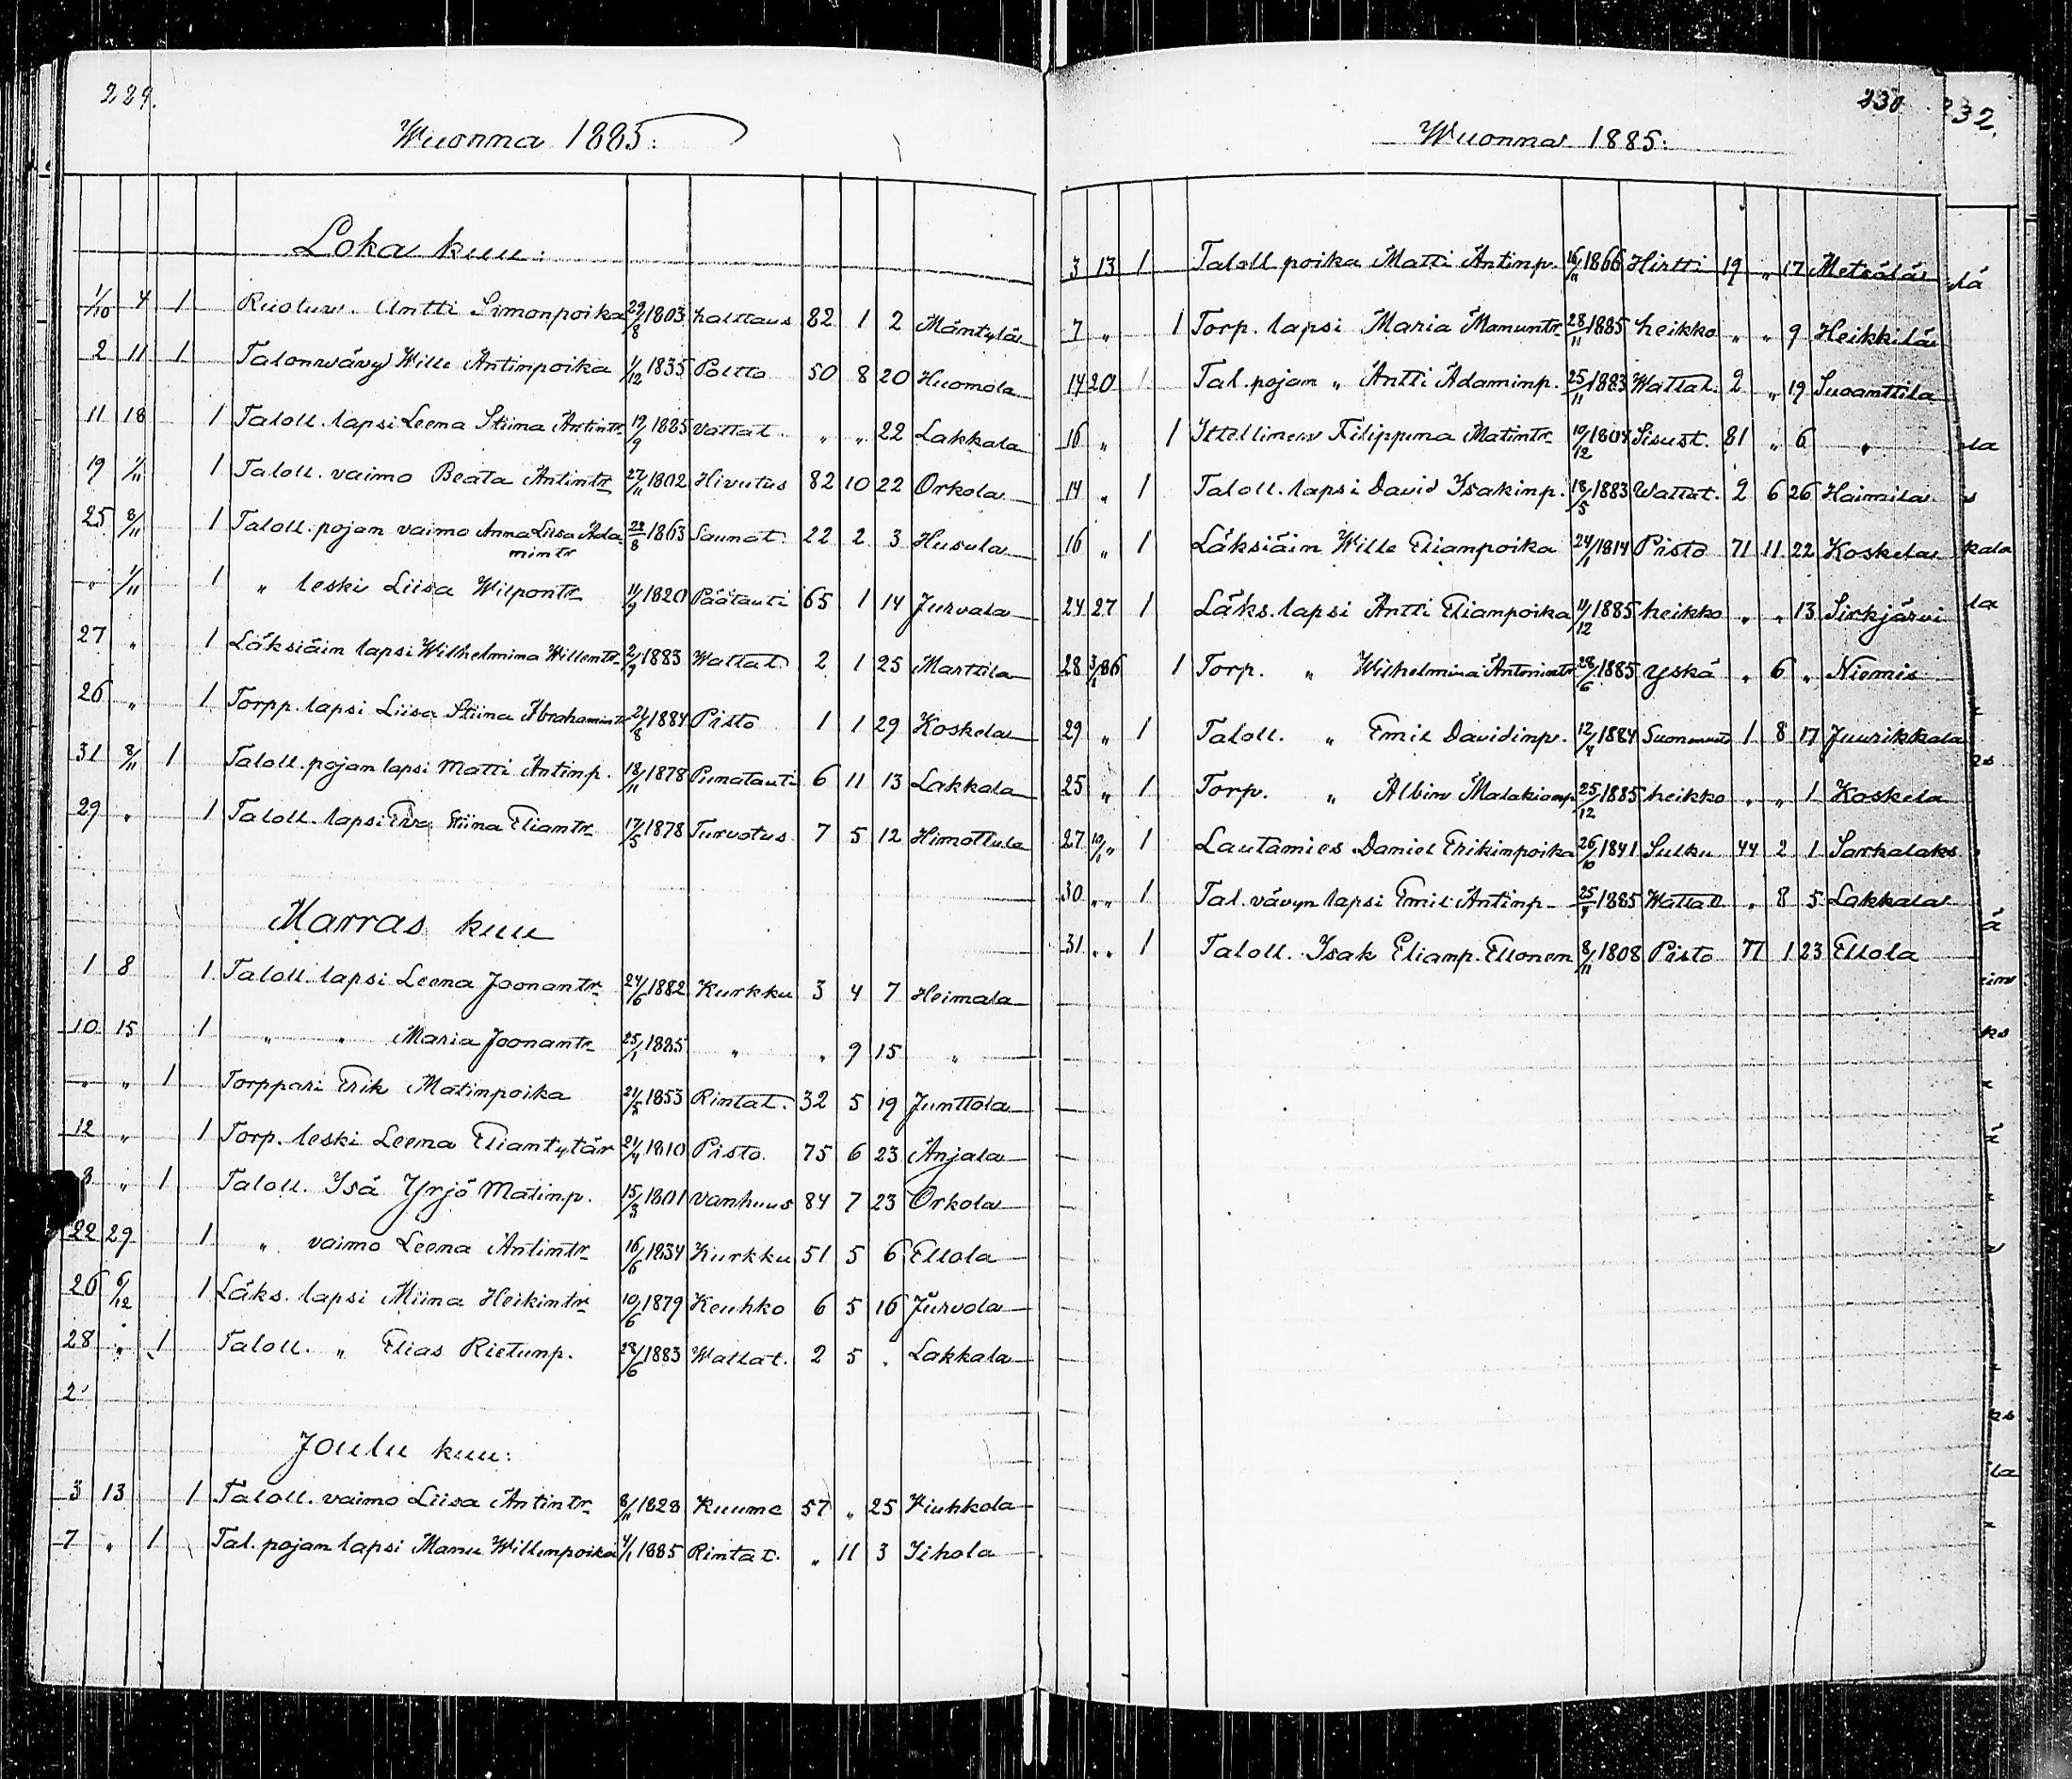 229.
Wuonna 1885:
Loka kuu:
1/10 4 1 Ruotuv. Antti Simonpoika 29/8 1803 halttaus 82 1 2 Mäntylä
2 11 1 Talonvävy Wille Antinpoika 1/12 1835 Poltto 50 8 20 Huomola
11 18 1 Taloll. lapsi Leena Stiina Antintr. 19/9 1885 Vattat. " " 22 Lakkala
19 1/11 1 Taloll. vaimo Beata Antintr. 27/11 1802 Hivutus 82 10 22 Orkola
25 8/11 1 Taloll. pojan vaimo Anna Liisa Ada-
mintr 22/8 1863 Saunat. 22 2 3 Husula
" 1/11 1 " leski Liisa Wilpontr. 11/9 1820 Päätauti 65 1 14 Jurvala
27 " 1 Läksiäin lapsi Wilhelmina Willentr. 2/9 1883 Wattat. 2 1 25 Marttila
26 " 1 Torpp. lapsi Liisa Stiina Abrahamintr 21/8 1884 Pisto 1 1 29 Koskela
31 8/11 1 Taloll. pojan lapsi Matti Antinp. 18/11 1878 Punatauti 6 11 13 Lakkala
29 " 1 Taloll. lapsi Eva Stiina Eliantr. 17/5 1878 Turvotus 7 5 12 Himottula
Marras kuu
1 8 1 Taloll. lapsi Leena Joonantr. 24/6 1882 Kurkku 3 4 7 Heimala
10 15 1 " " Maria Joonantr. 25/1 1885 " " 9 15 "
" " 1 Torppari Erik Matinpoika 21/5 1853 Rintat. 32 5 19 Junttola
12 " 1 Torp. leski Leena Eliantytär 21/4 1810 Pisto. 75 6 23 Anjala
3 " 1 Taloll. Isä Yrjö Matinp. 15/3 1801 Vanhuus 84 7 23 Orkola
22 29 1 " vaimo Leena Antintr. 16/6 1834 Kurkku 51 5 6 Ellola
26 6/12 1 Läks. lapsi Miina Heikintr. 10/6 1879 Keuhko 6 5 16 Jurvola
28 " 1 Taloll. " Elias Rietunp. 28/6 1883 Wattat. 2 5 . Lakkala
2
Joulu kuu:
3 13 1 Taloll. vaimo Liisa Antintr. 8/11 1828 Kuume 57 " 25 Kiuhkola
7 " 1 Tal. pojan lapsi Manu Willenpoika 4/1 1885 Rintat. " 11 3 Iihola
230
Wuonna 1885:
3 13 1 Taloll poika Matti Antinp. 16/11 1866 Hirtti 19 " 17 Metsälä
7 " 1 Torp. lapsi Maria Manuntr. 28/11 1885 heikko " " 9 Heikkilä
14 20 1 Tal. pojan " Antti Adaminp. 25/11 1883 Wattat. 2 " 19 Suoanttila
16 " 1 Itsellinen Filippina Matintr. 10/12 1804 Sisust. 81 " 6 "
14 " 1 Taloll. lapsi David Isakinp. 18/5 1883 Wattat. 2 6 26 Haimila
16 " 1 Läksiäin Wille Elianpoika 24/1 1814 Pisto 71 11 22 Koskela
24 27 1 Läks. lapsi Antti Elianpoika 11/12 1885 heikko " " 13 Sirkjärvi
28 3/1 86 1 Torp. " Wilhelmina Antonintr 28/6 1885 Yskä " 6 " Niemis
29 " 1 Taloll. " Emil Davidinp. 12/4 1884 1 8 17 Juurikkala
25 " 1 Torp. " Albin Malakianp. 25/12 1885 heikko " " 1 Koskela
27 10/1 " 1 Lautamies Daniel Erikinpoika 26/10 1841 Sulku 44 2 1 Sarkalaks
30 " " 1 Tal. vävyn lapsi Emil Antinp. 25/4 1885 Wattat " 8 5 Lakkala
31 " " 1 Taloll. Isak Elianp. Ellonen 8/11 1808 Pisto 77 1 23 Ellola
232.